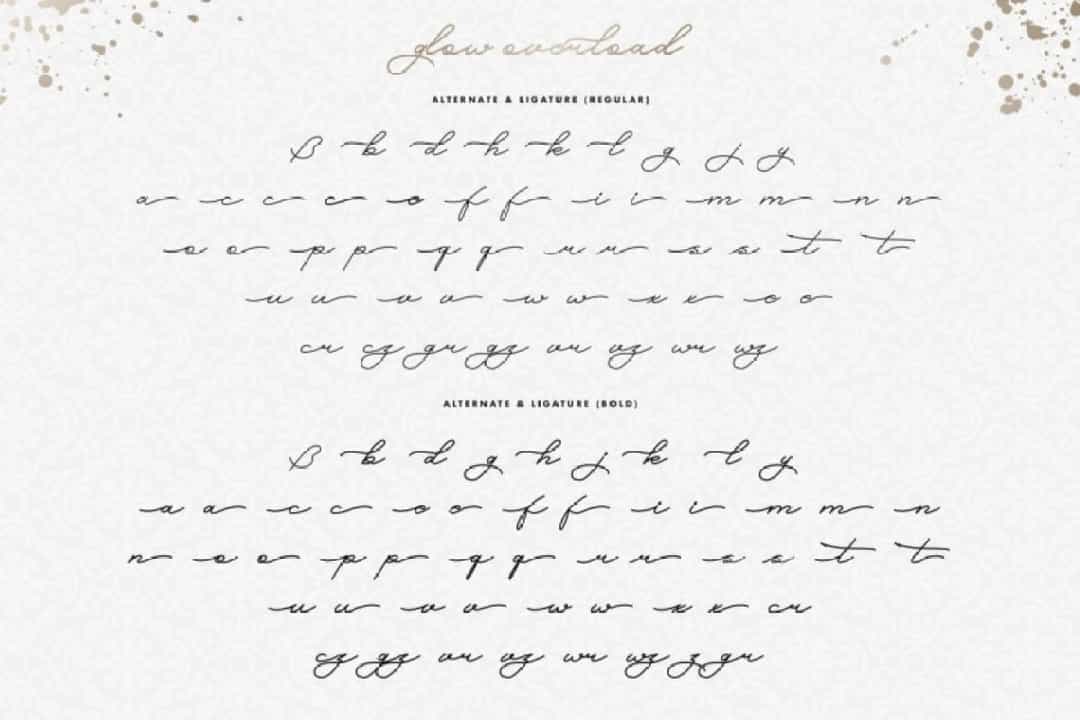 glow overload
ALTERNATE & LIGATURE (REGULAR)
B b d h k l g j y
a c c c o f f i i m m n n
o o p p q q r r s s t t
u u v v w w x x o o
cr cz gr gz or oz wr wz
ALTERNATE & LIGATURE (BOLD)
B b d g h j k l y
a a c c o o f f i i m m n
n o o p p q q r r s s t t
u u v v w w x x cr
cz gz or oz wr wz z gr